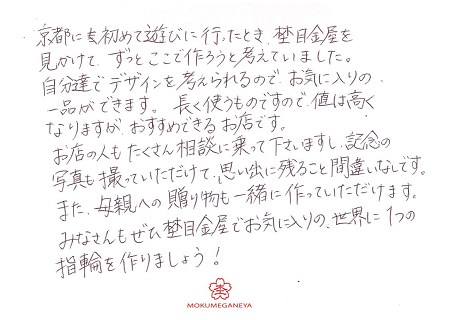 京都にも初めて遊びに行ったとき、杢目金屋を
見かけて、ずっとここで作ろうと考えていました。
自分達でデザインを考えられるので、お気に入りの
一品ができます。長く使うものですので、値は高く
なりますが、おすすめできるお店です。
お店の人もたくさん相談に乗って下さいますし、記念の
写真も撮っていただけて、思い出に残ること間違いなしです。
また、母親への贈り物も一緒に作っていただけます。
みなさんもぜひ杢目金屋でお気に入りの、世界に1つの
指輪を作りましょう!
MOKUMEGANEYA